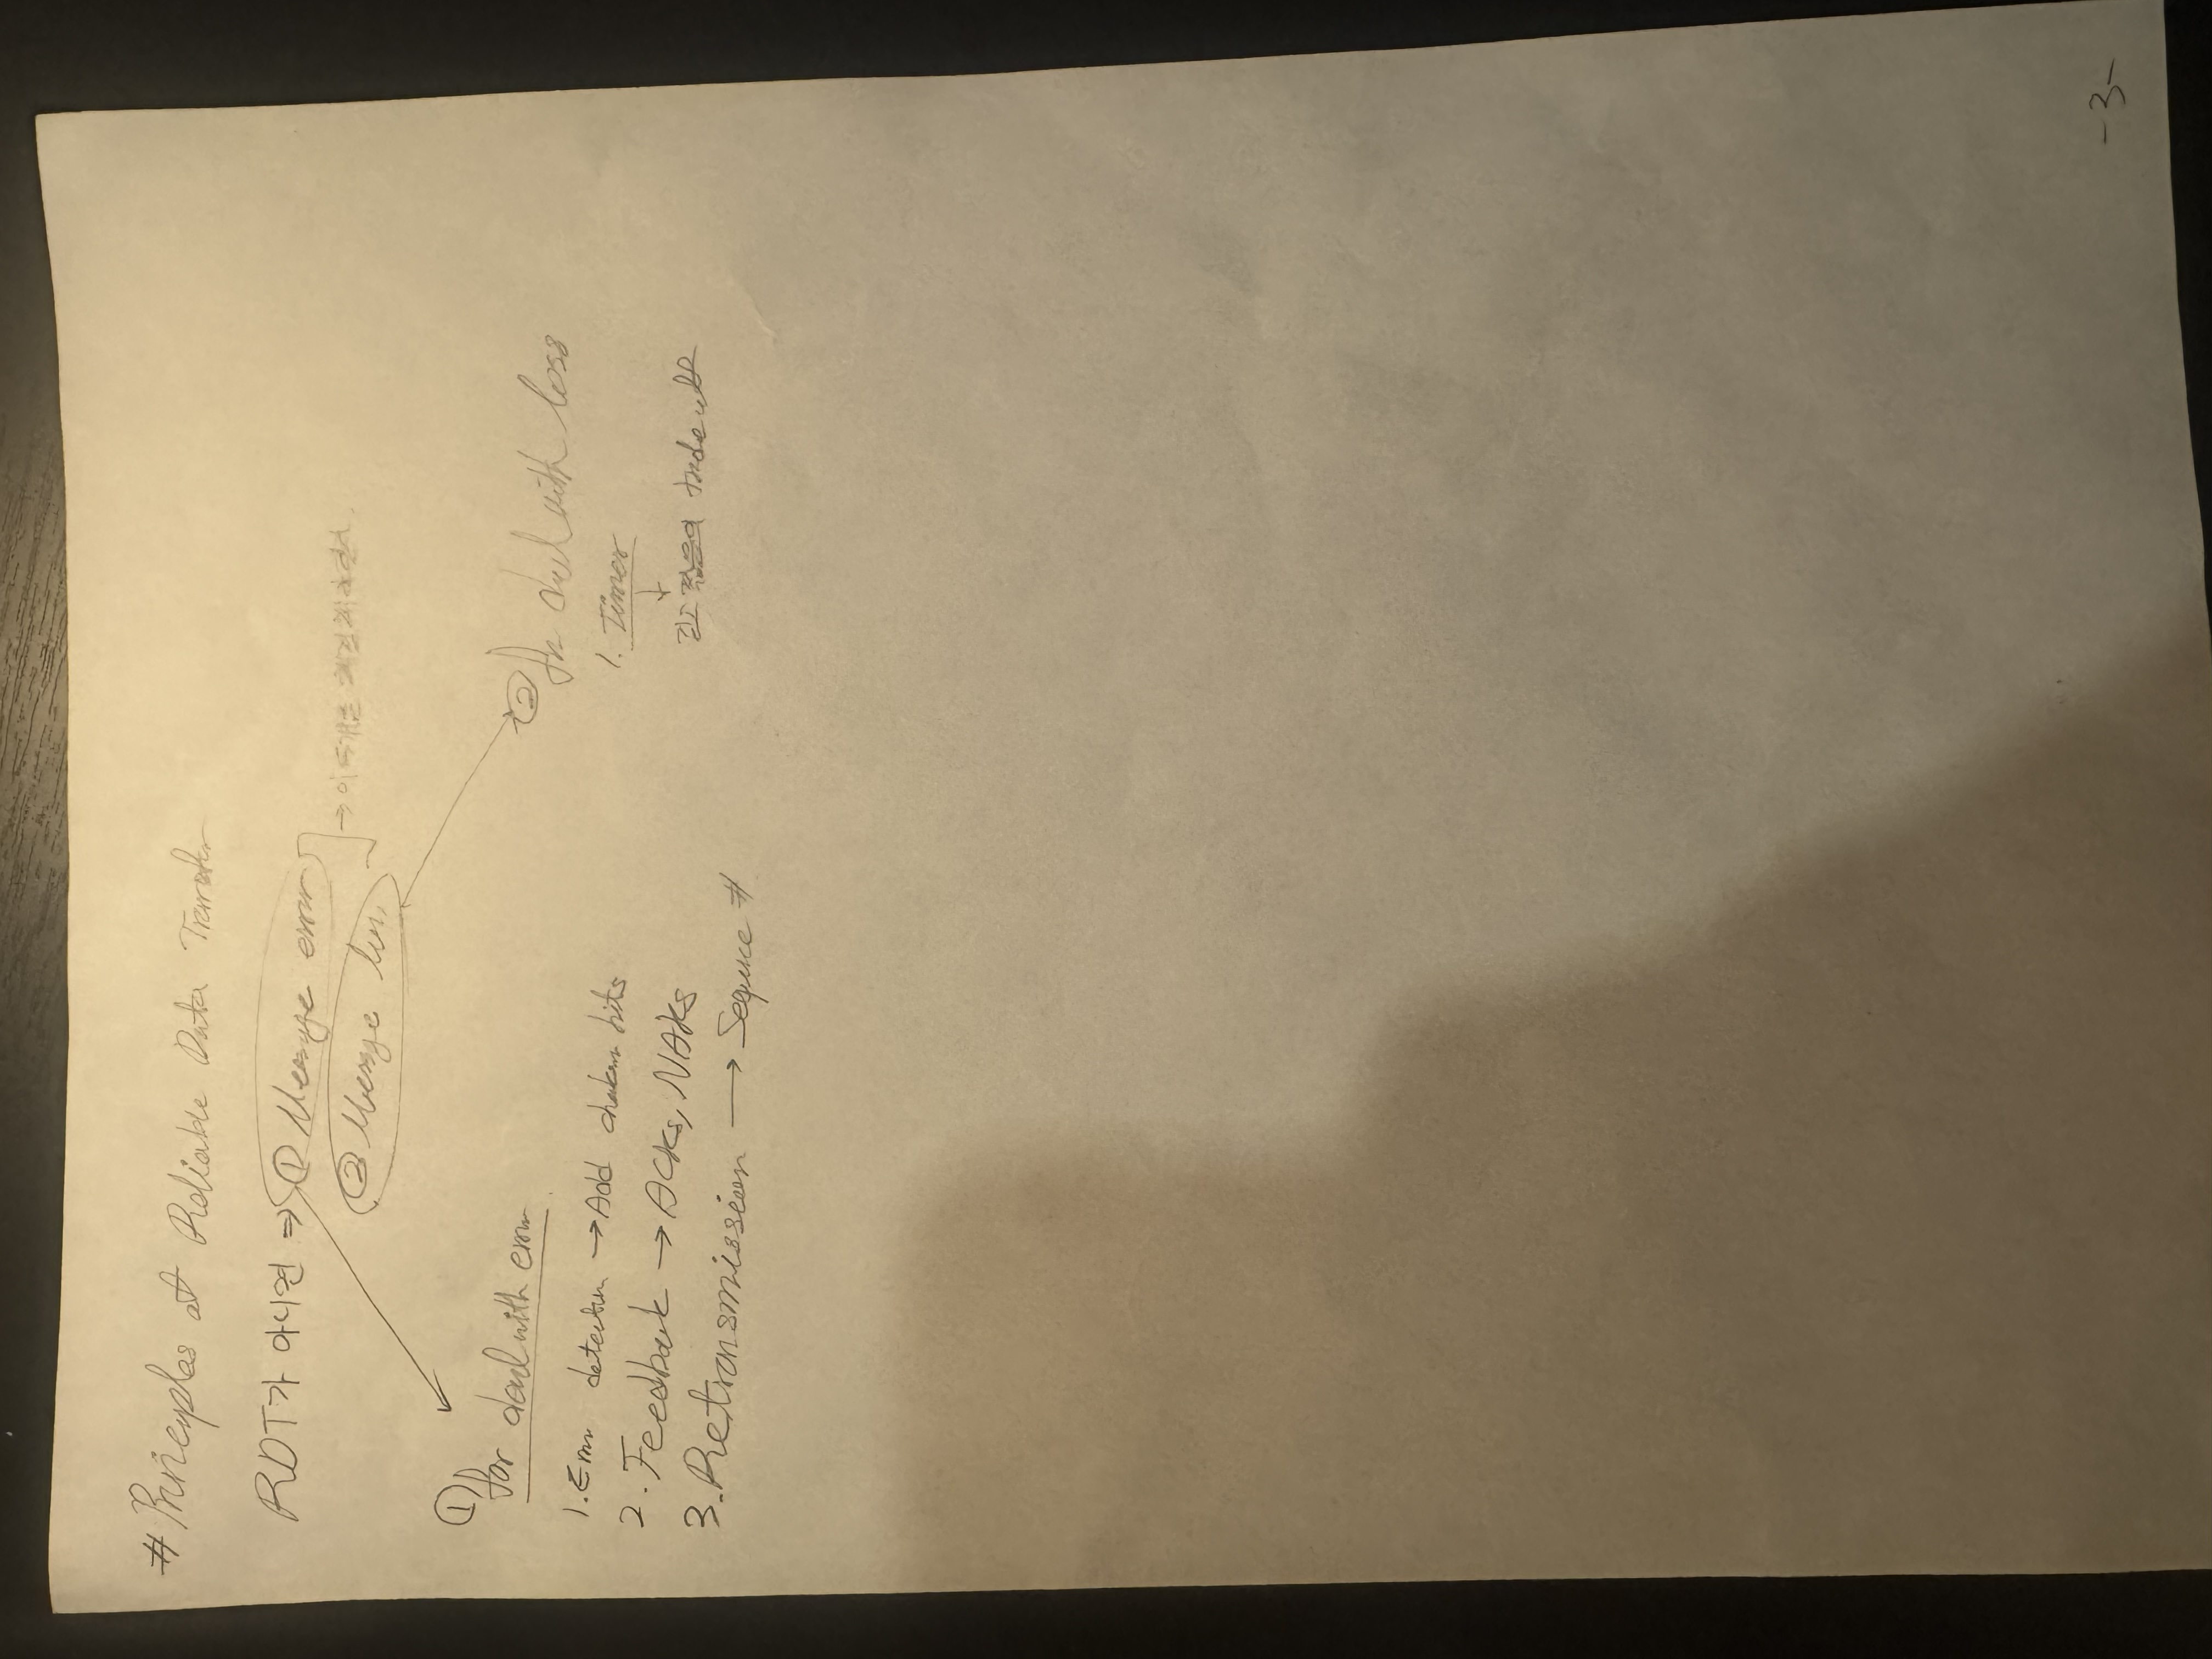 # Principles of Reliable Data Transfer
RDT가 아니면 ⇒ ① Message error
② Message loss
→ 이 두개는
① for deal with error
1. Error detection → Add checksum bits
2. Feedback → ACKs, NAKs
3. Retransmission → Sequence #
② for deal with loss
1. Timer
↓
trade off
-3-